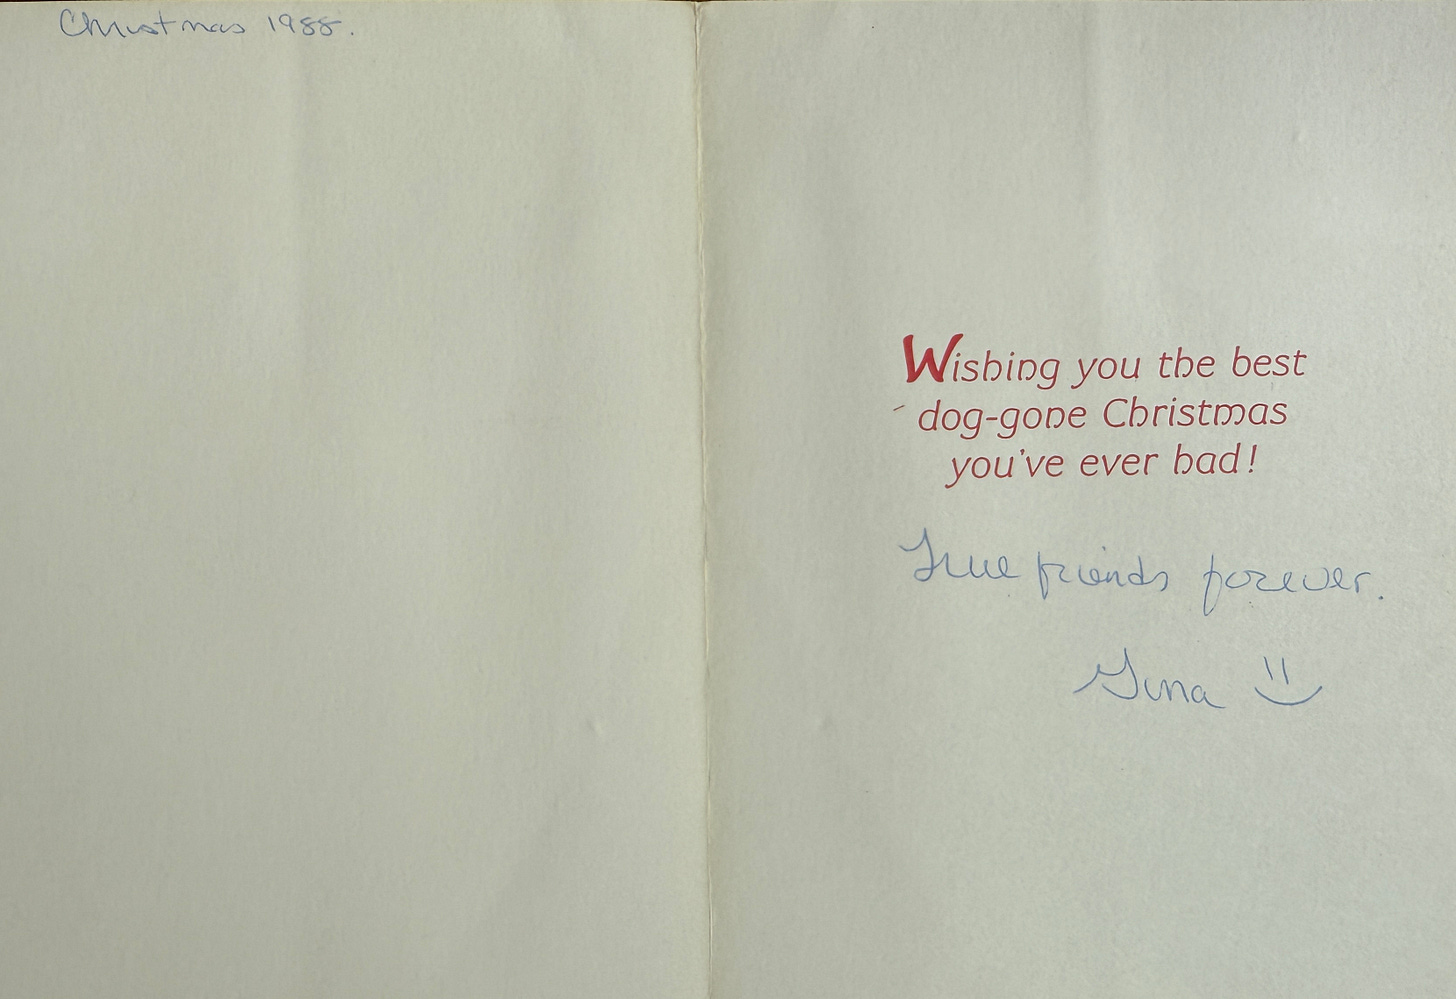 Christmas 1988.
Wishing you the best
dog-gone Christmas
you've ever had!
True friends forever.
Gina